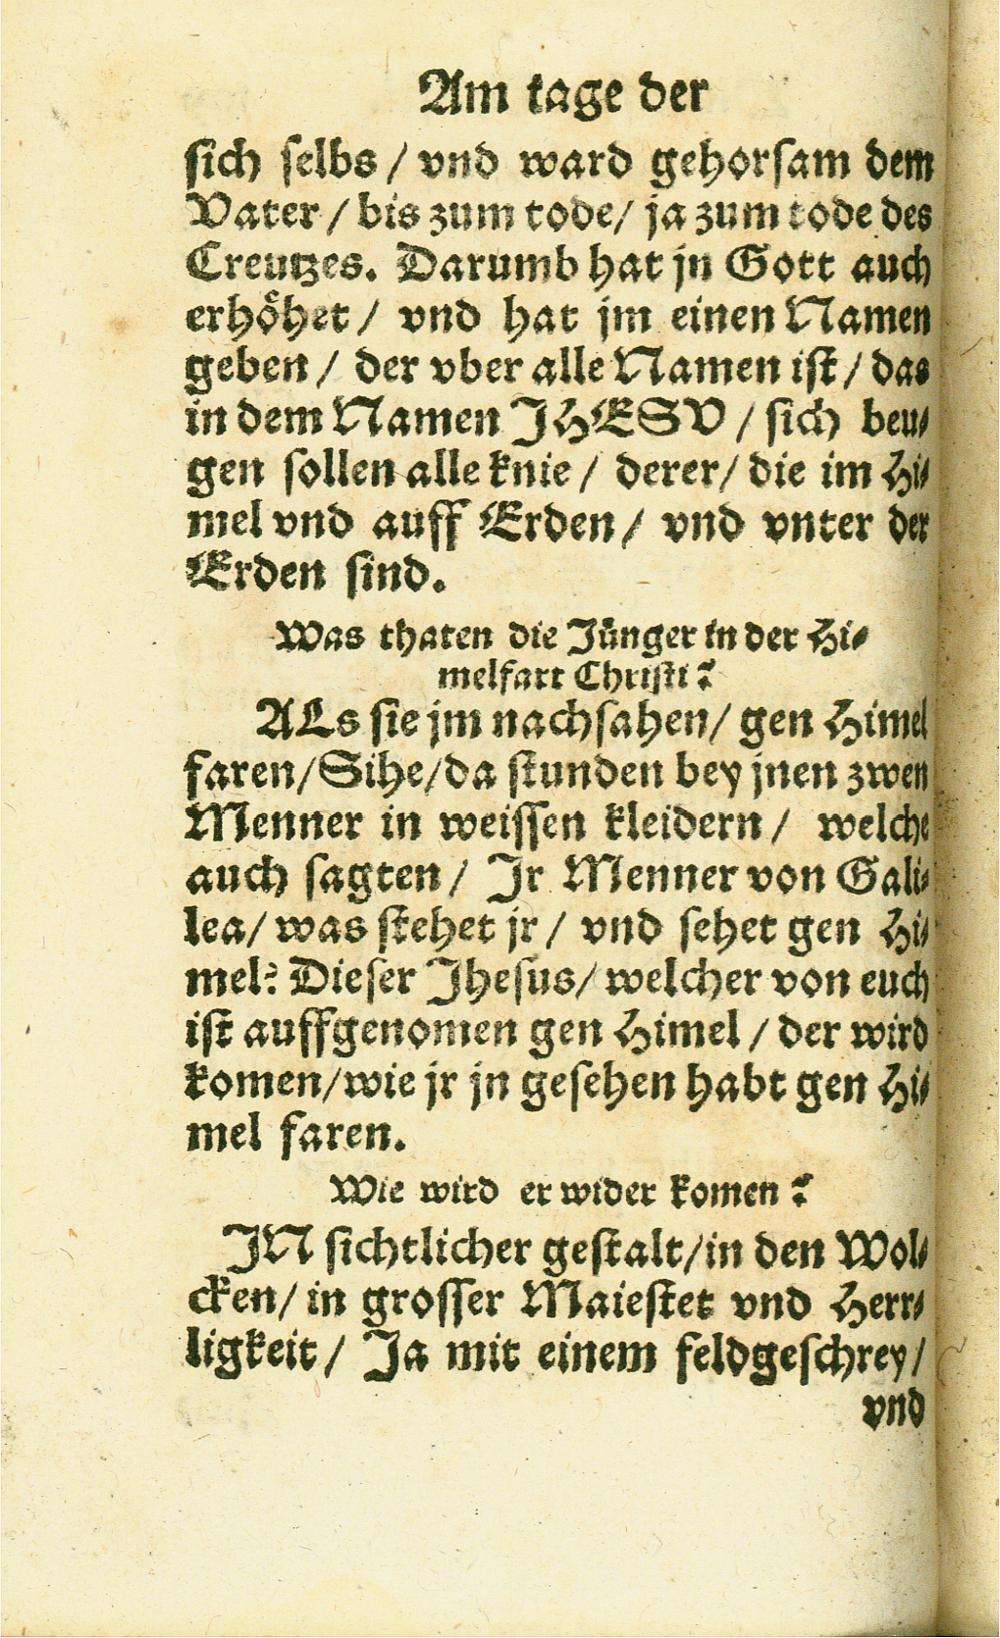 Am tage der
sich selbs / vnd ward gehorsam dem
Vater / bis zum tode / ja zum tode des
Creutzes. Darumb hat jn Gott auch
erhöhet / vnd hat jm einen Namen
geben / der vber alle Namen ist / das
in dem Namen JHESV / sich beu⸗
gen sollen alle knie / derer / die im Hi⸗
mel vnd auff Erden / vnd vnter der
Erden sind.
Was thaten die Jünger in der Hi⸗
melfart Christi?
ALs sie jm nachsahen / gen Himel
faren / Sihe / da stunden bey jnen zwen
Menner in weissen kleidern / welche
auch sagten / Jr Menner von Gali⸗
lea / was stehet jr / vnd sehet gen Hi⸗
mel? Dieser Jhesus / welcher von euch
ist auffgenomen gen Himel / der wird
komen / wie jr jn gesehen habt gen Hi⸗
mel faren.
Wie wird er wider komen?
JN sichtlicher gestalt / in den Wol⸗
cken / in grosser Maiestet vnd Herr⸗
ligkeit / Ja mit einem feldgeschrey /
vnd